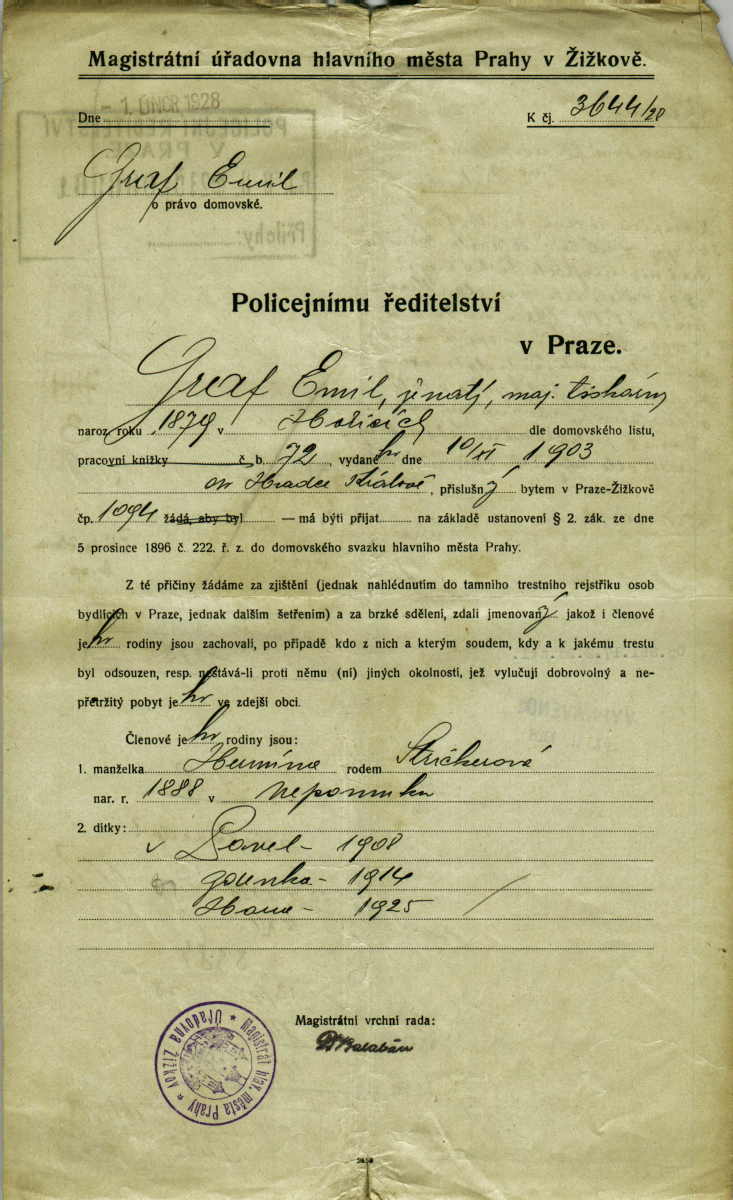 Magistrátní úřadovna hlavního města Prahy v Žižkově.
Dne - 1. ÚNOR 1928
K čj. 3644/28
Graf Emil
o právo domovské.
Policejnímu ředitelství
v Praze.
Graf Emil, ženatý, maj. tiskárny
naroz. roku 1879 v Hořicích dle domovského listu,
pracovní knížky č. b. 72, vydané ho dne 10/XI 1903
ov Hradce Králové, příslušný bytem v Praze-Žižkově
čp. 1094 žádá, aby byl — má býti přijat na základě ustanovení § 2. zák. ze dne
5 prosince 1896 č. 222. ř. z. do domovského svazku hlavního města Prahy.
Z té příčiny žádáme za zjištění (jednak nahlédnutím do tamního trestního rejstříku osob
bydlících v Praze, jednak dalším šetřením) a za brzké sdělení, zdali jmenovaný jakož i členové
jeho rodiny jsou zachovalí, po případě kdo z nich a kterým soudem, kdy a k jakému trestu
byl odsouzen, resp. nestává-li proti němu (ní) jiných okolností, jež vylučují dobrovolný a ne-
přetržitý pobyt jeho ve zdejší obci.
Členové jeho rodiny jsou:
1. manželka Hermína rodem Stričkerová
nar. r. 1888 v Nepomuku
2. dítky:
v Pavel - 1908
Zdenka - 1914
Hana - 1925
Magistrátní vrchní rada:
Dr Balabán
Magistrát hlav. města Prahy * Úřadovna Žižkov *